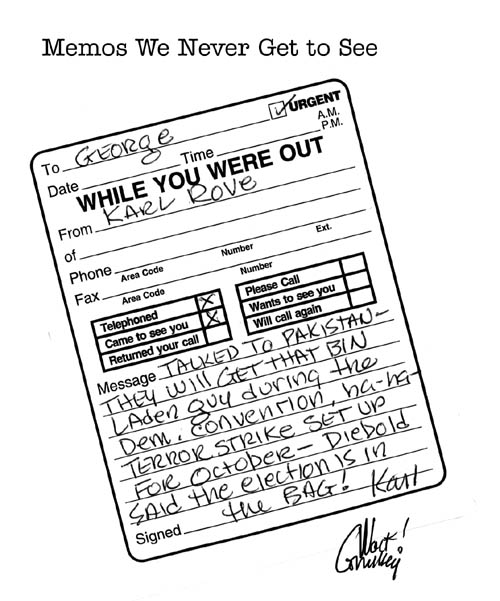 Memos We Never Get to See
URGENT
A.M.
P.M.
To George
Date Time
WHILE YOU WERE OUT
From KARL ROVE
of
Phone Area Code Number Ext.
Fax Area Code Number
Telephoned X Please Call
Came to see you X Wants to see you
Returned your call Will call again
Message TALKED TO PAKISTAN-
THEY WILL GET THAT BIN
LADen guy during the
Dem. Convention, ha-ha-
TERROR STRIKE SET UP
FOR October- Diebold
SAID the election IS in
the BAG! Karl
Signed